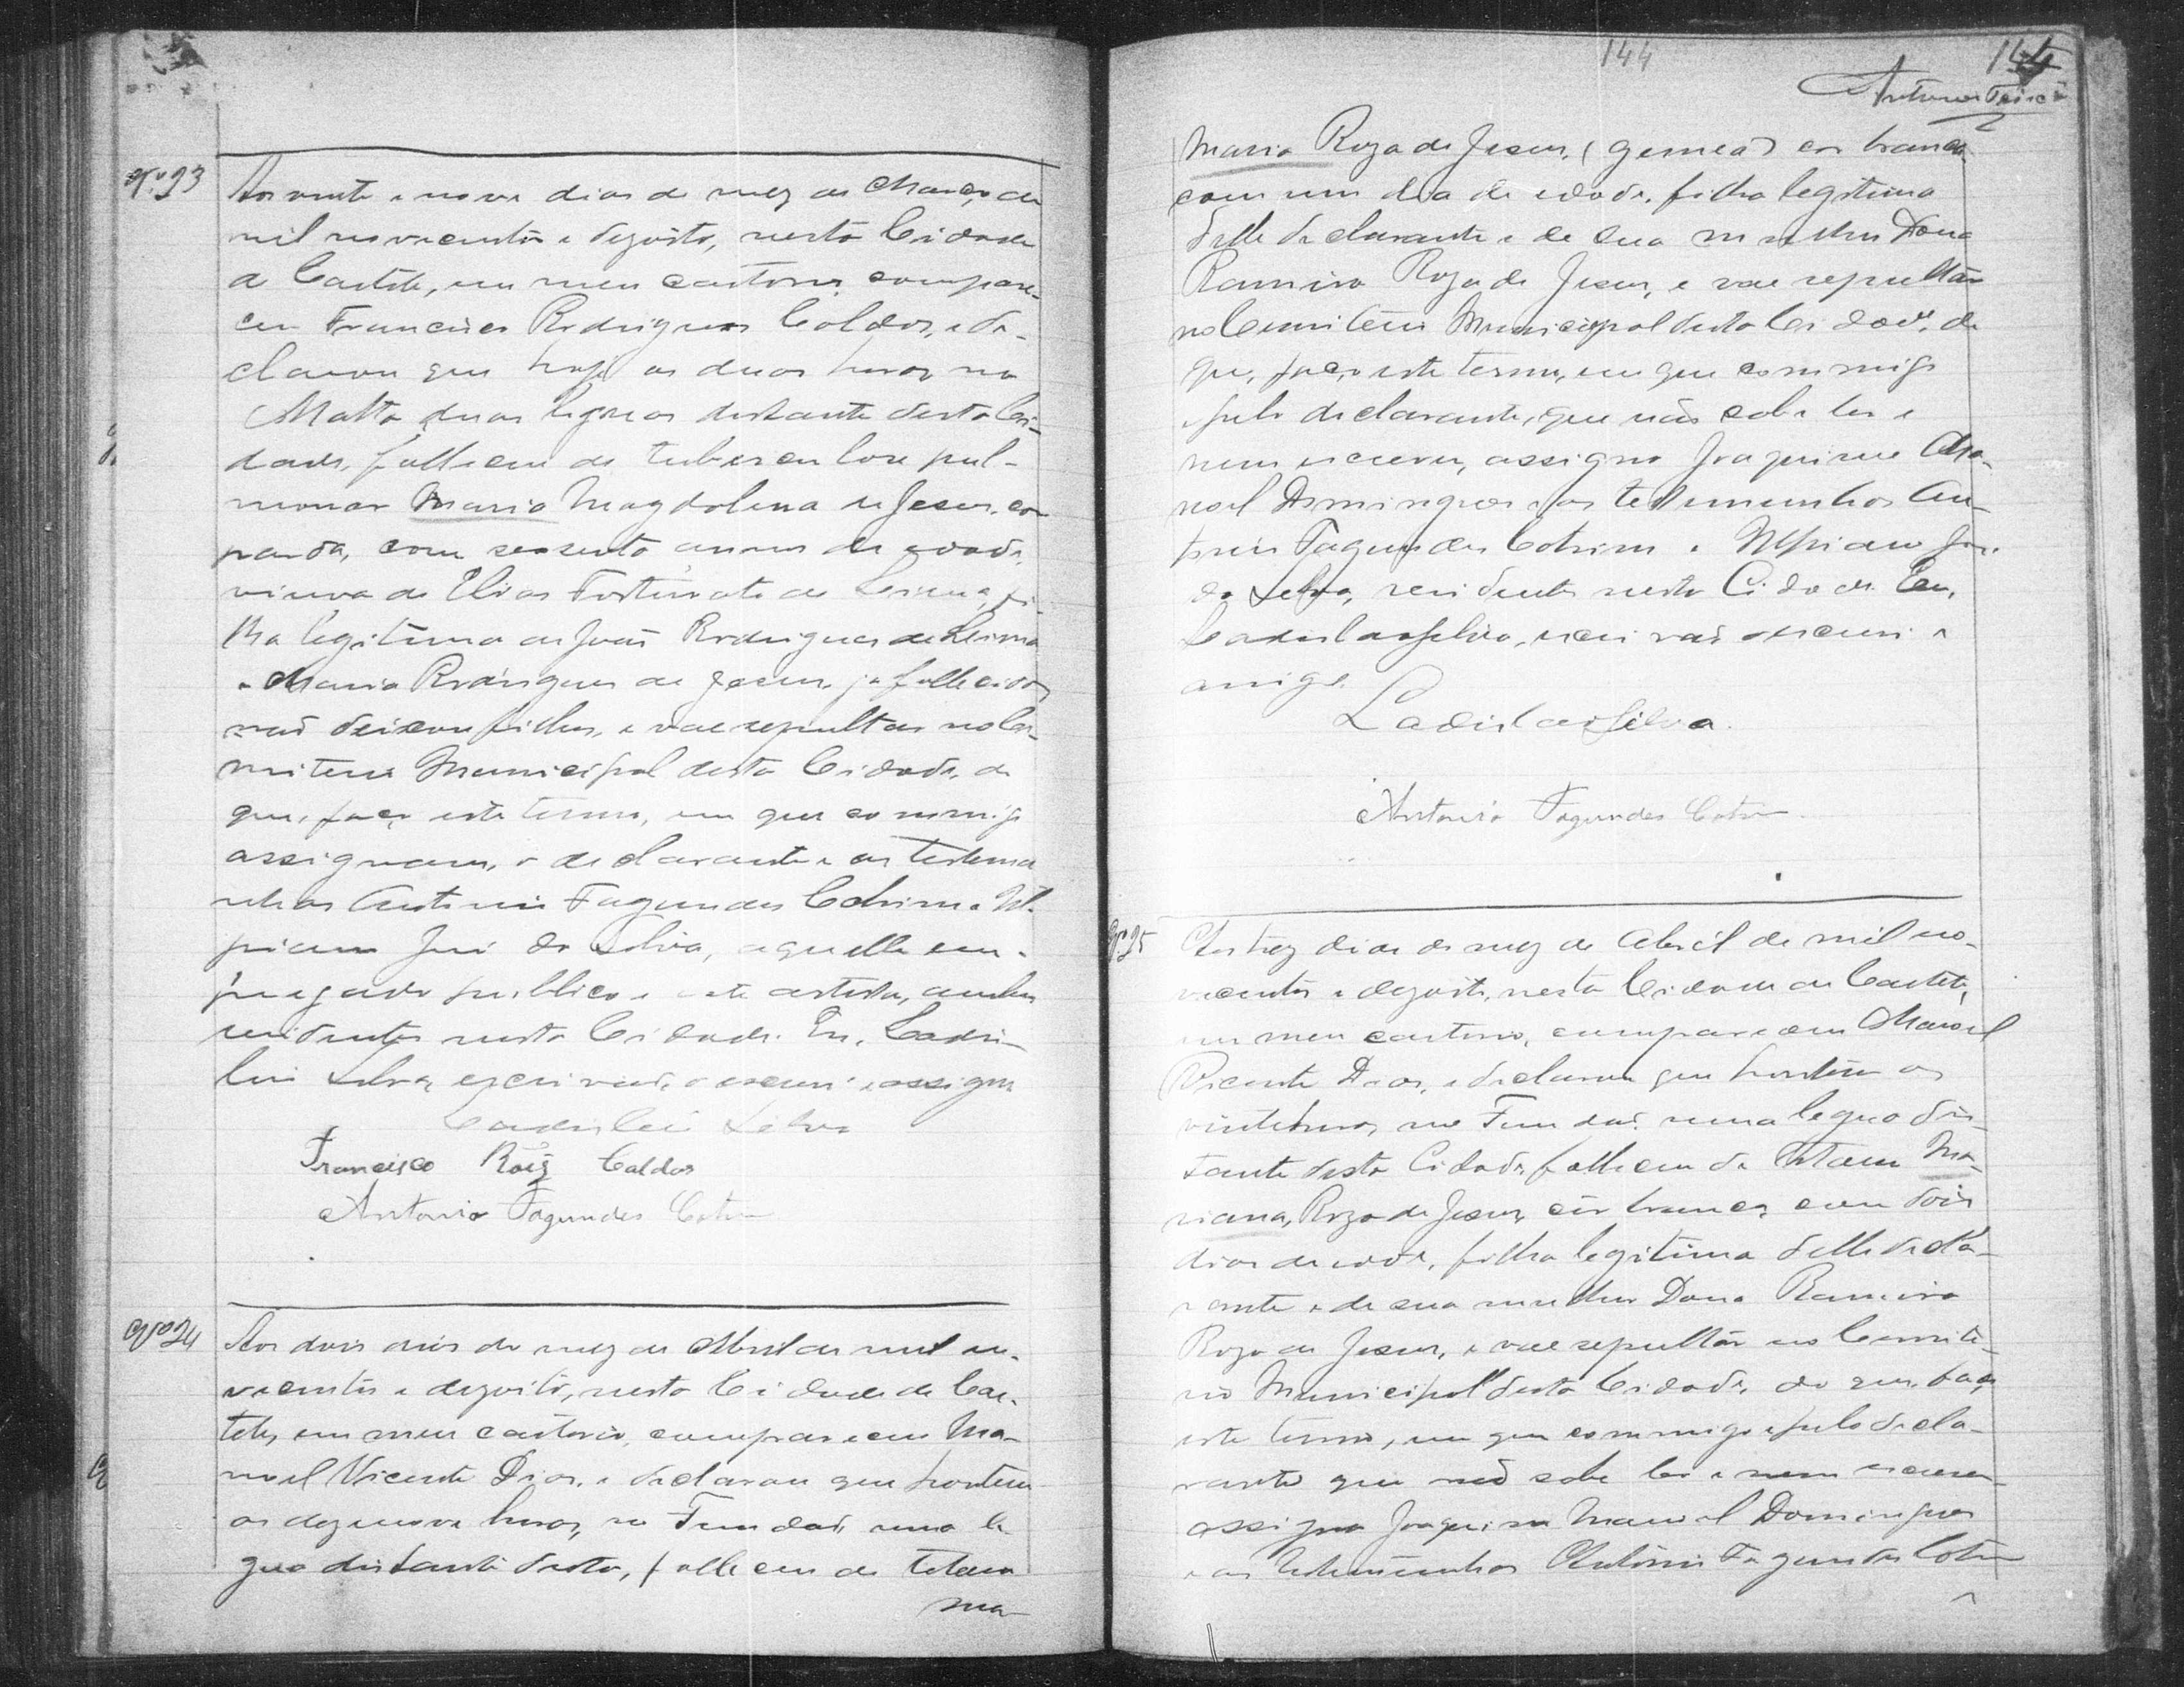 Nº 23
Aos vinte e nove dias do mez de Março de
mil novecentos e dezoito, nesta Cidade
de Caeteté, em meu cartorio compare-
ceu Francisco Rodrigues Caldas, e de-
clarou que hoje as duas horas no
Matto, duas leguas distante desta Ci-
dade, falleceu de tuberculose pul-
monar Maria Magdalena de Jesus, cor
parda, com sessenta annos de edade,
viuva de Elias Fortunato de Lima, fi-
lha legitima de João Rodrigues de Lima
e Maria Rodrigues de Jesus, já fallecidos
não deixou filhos, e vae sepultar no Ce-
miterio Municipal desta Cidade, de
que, faço este termo, em que commigo
assignam, o declarante e as testemu
nhas Antonio Fagundes Cotrim e Ul-
piano José da Silva, aquelle em-
pregado publico e este artista, ambos
residentes nesta Cidade. Eu, Ladis-
lau Silva, escrivão, o escrevi e assigno
Ladislau Silva
Francisco Roiz Caldas
Antonio Fagundes Cotrim
Nº 24
Aos dois dias do mez de Abril de mil no-
vecentos e dezoito, nesta Cidade de Cae-
teté, em meu cartorio, compareceu Ma-
noel Vicente Dias, e declarou que hontem
as dezenove horas, no Fundão, uma le-
gua distante desta, falleceu de tetano
ma-
144
144
Antonio
Maria Roza de Jesus, (gemea) cor branca
com um dia de edade, filha legitima
delle declarante e de sua mulher Dona
Ramira Roza de Jesus, e vae sepultar
no Cemiterio Municipal desta Cidade, de
que, faço este termo, em que commigo
e pelo declarante, que não sabe ler e
nem escrever, assigna Joaquim Ma-
noel Domingues e as testemunhas An-
tonio Fagundes Cotrim e Ulpiano José
da Silva, residentes nesta Cidade. Eu,
Ladislau Silva, escrivão o escrevi e
assigno.
Ladislau Silva.
Antonio Fagundes Cotrim
Nº 25
Aos trez dias do mez de Abril de mil no-
vecentos e dezoito, nesta Cidade de Caeteté,
em meu cartorio, compareceu Manoel
Vicente Dias, e declarou que hontem as
vinte horas, no Fundão, uma legua dis-
tante desta Cidade, falleceu de tetano Ma-
riana, Roza de Jesus, côr branca, com dois
dias de edade, filha legitima delle decla-
rante e de sua mulher Dona Ramira
Roza de Jesus, e vae sepultar no Cemite-
rio Municipal desta Cidade, do que, faço
este termo, em que commigo e pelo decla-
rante que não sabe ler e nem escrever
assigna Joaquim Manoel Domingues
e as testemunhas Antonio Fagundes Cotrim